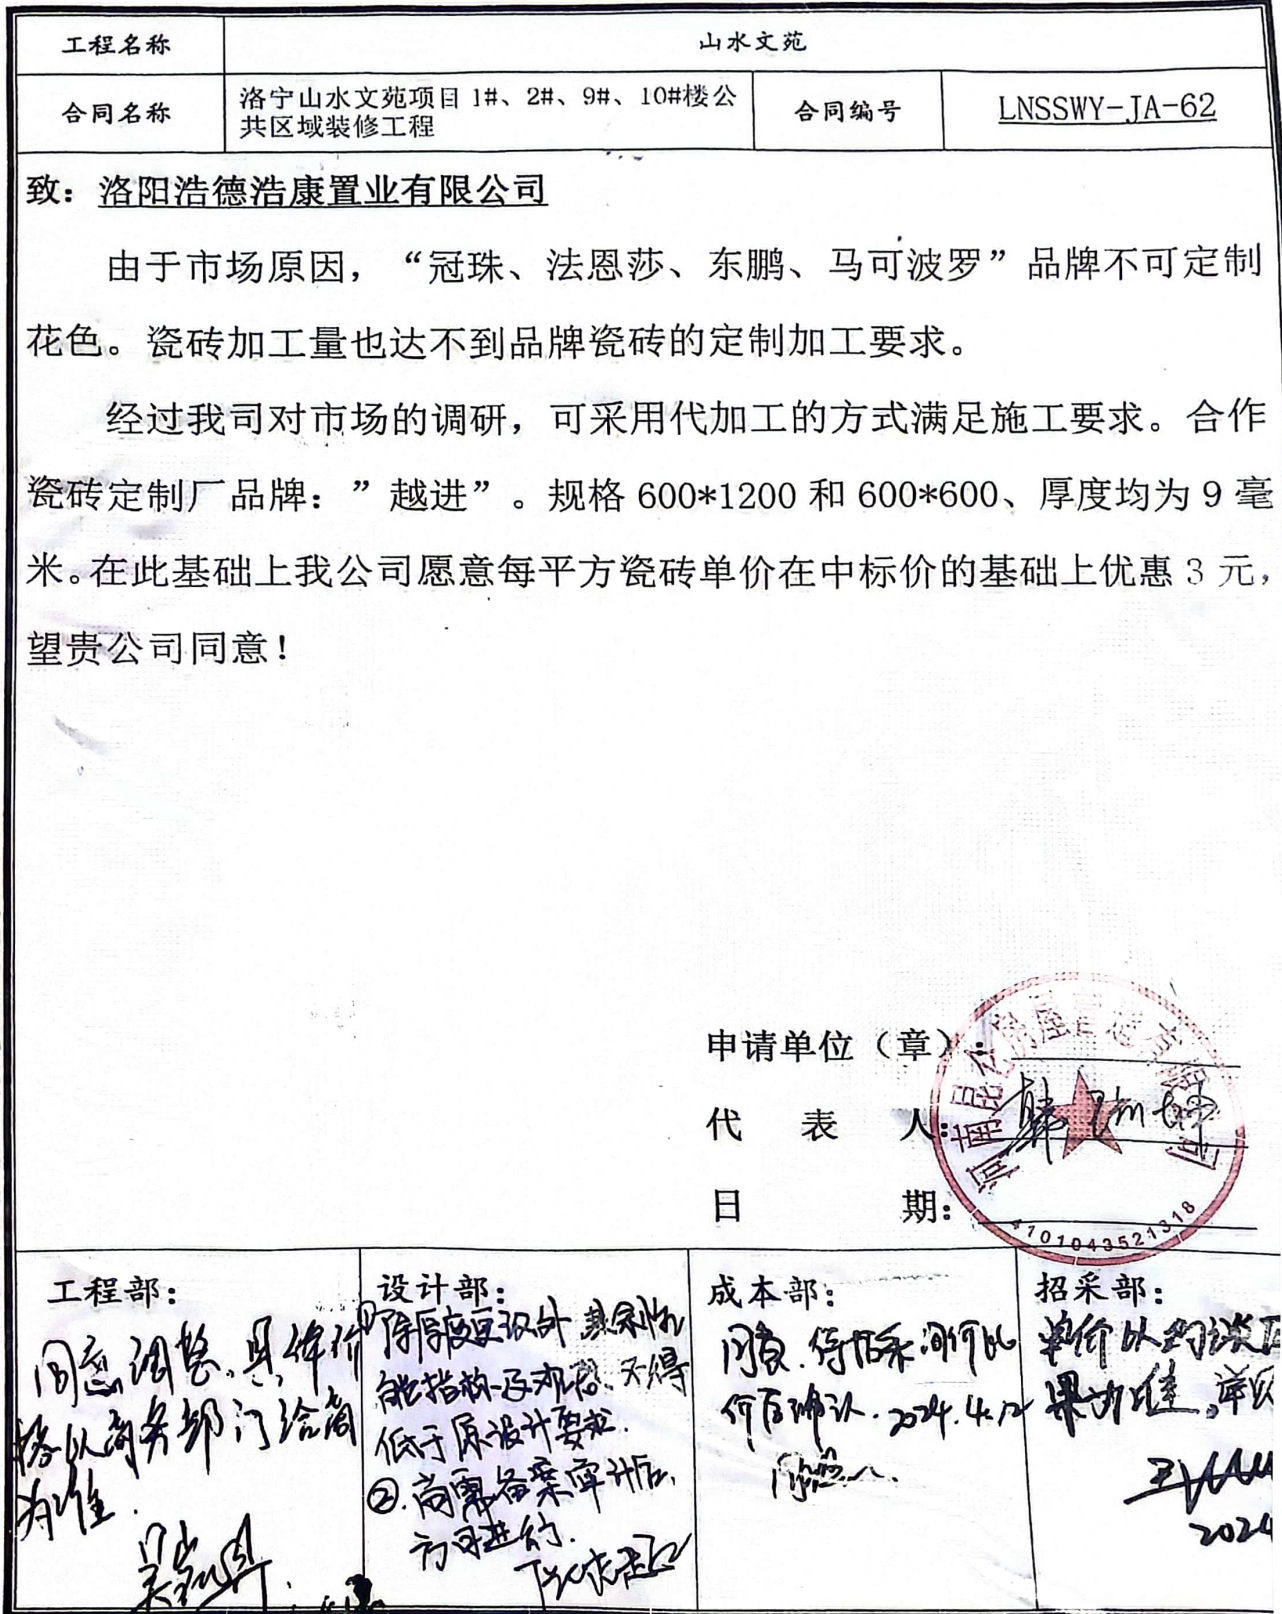 工程名称 山水文苑
合同名称 洛宁山水文苑项目1#、2#、9#、10#楼公
共区域装修工程
合同编号 LNSSWY-JA-62
致：洛阳浩德浩康置业有限公司
由于市场原因，“冠珠、法恩莎、东鹏、马可波罗”品牌不可定制
花色。瓷砖加工量也达不到品牌瓷砖的定制加工要求。
经过我司对市场的调研，可采用代加工的方式满足施工要求。合作
瓷砖定制厂品牌：”越进”。规格600*1200和600*600、厚度均为9毫
米。在此基础上我公司愿意每平方瓷砖单价在中标价的基础上优惠3元，
望贵公司同意！
申请单位（章）：
代表人：
日期：
4101043521318
工程部：
同意调整，具体价
格以商务部门给定
为准.
设计部：
①除厚度更改外 其余性
能指标 不得
低于原设计要求.
②.尚需备案审计后,
方可进行.
成本部：
同意.待招采询价比
价后确认.2024.4.12
招采部：
单价以约谈
果为准，
2024